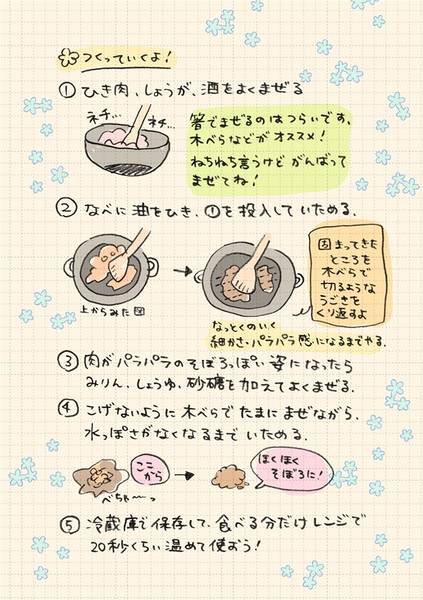 つくっていくよ！
① ひき肉、しょうが、酒をよくまぜる
ネチ…
ネチ…
箸でまぜるのはつらいです、
木べらなどがオススメ！
ねちねち言うけど がんばって
まぜてね！
② なべに油をひき、①を投入していためる.
上からみた図
固まってきた
ところを
木べらで
切るような
うごきを
くり返すよ
なっとくのいく
細かさ・パラパラ感になるまでやる.
③ 肉がパラパラのそぼろっぽい姿になったら
みりん、しょうゆ、砂糖を加えてよくまぜる.
④ こげないように木べらでたまにまぜながら、
水っぽさがなくなるまでいためる.
ここ
から
べちゃ〜っ
ほくほく
そぼろに！
⑤ 冷蔵庫で保存して、食べる分だけレンジで
20秒くらい温めて使おう！